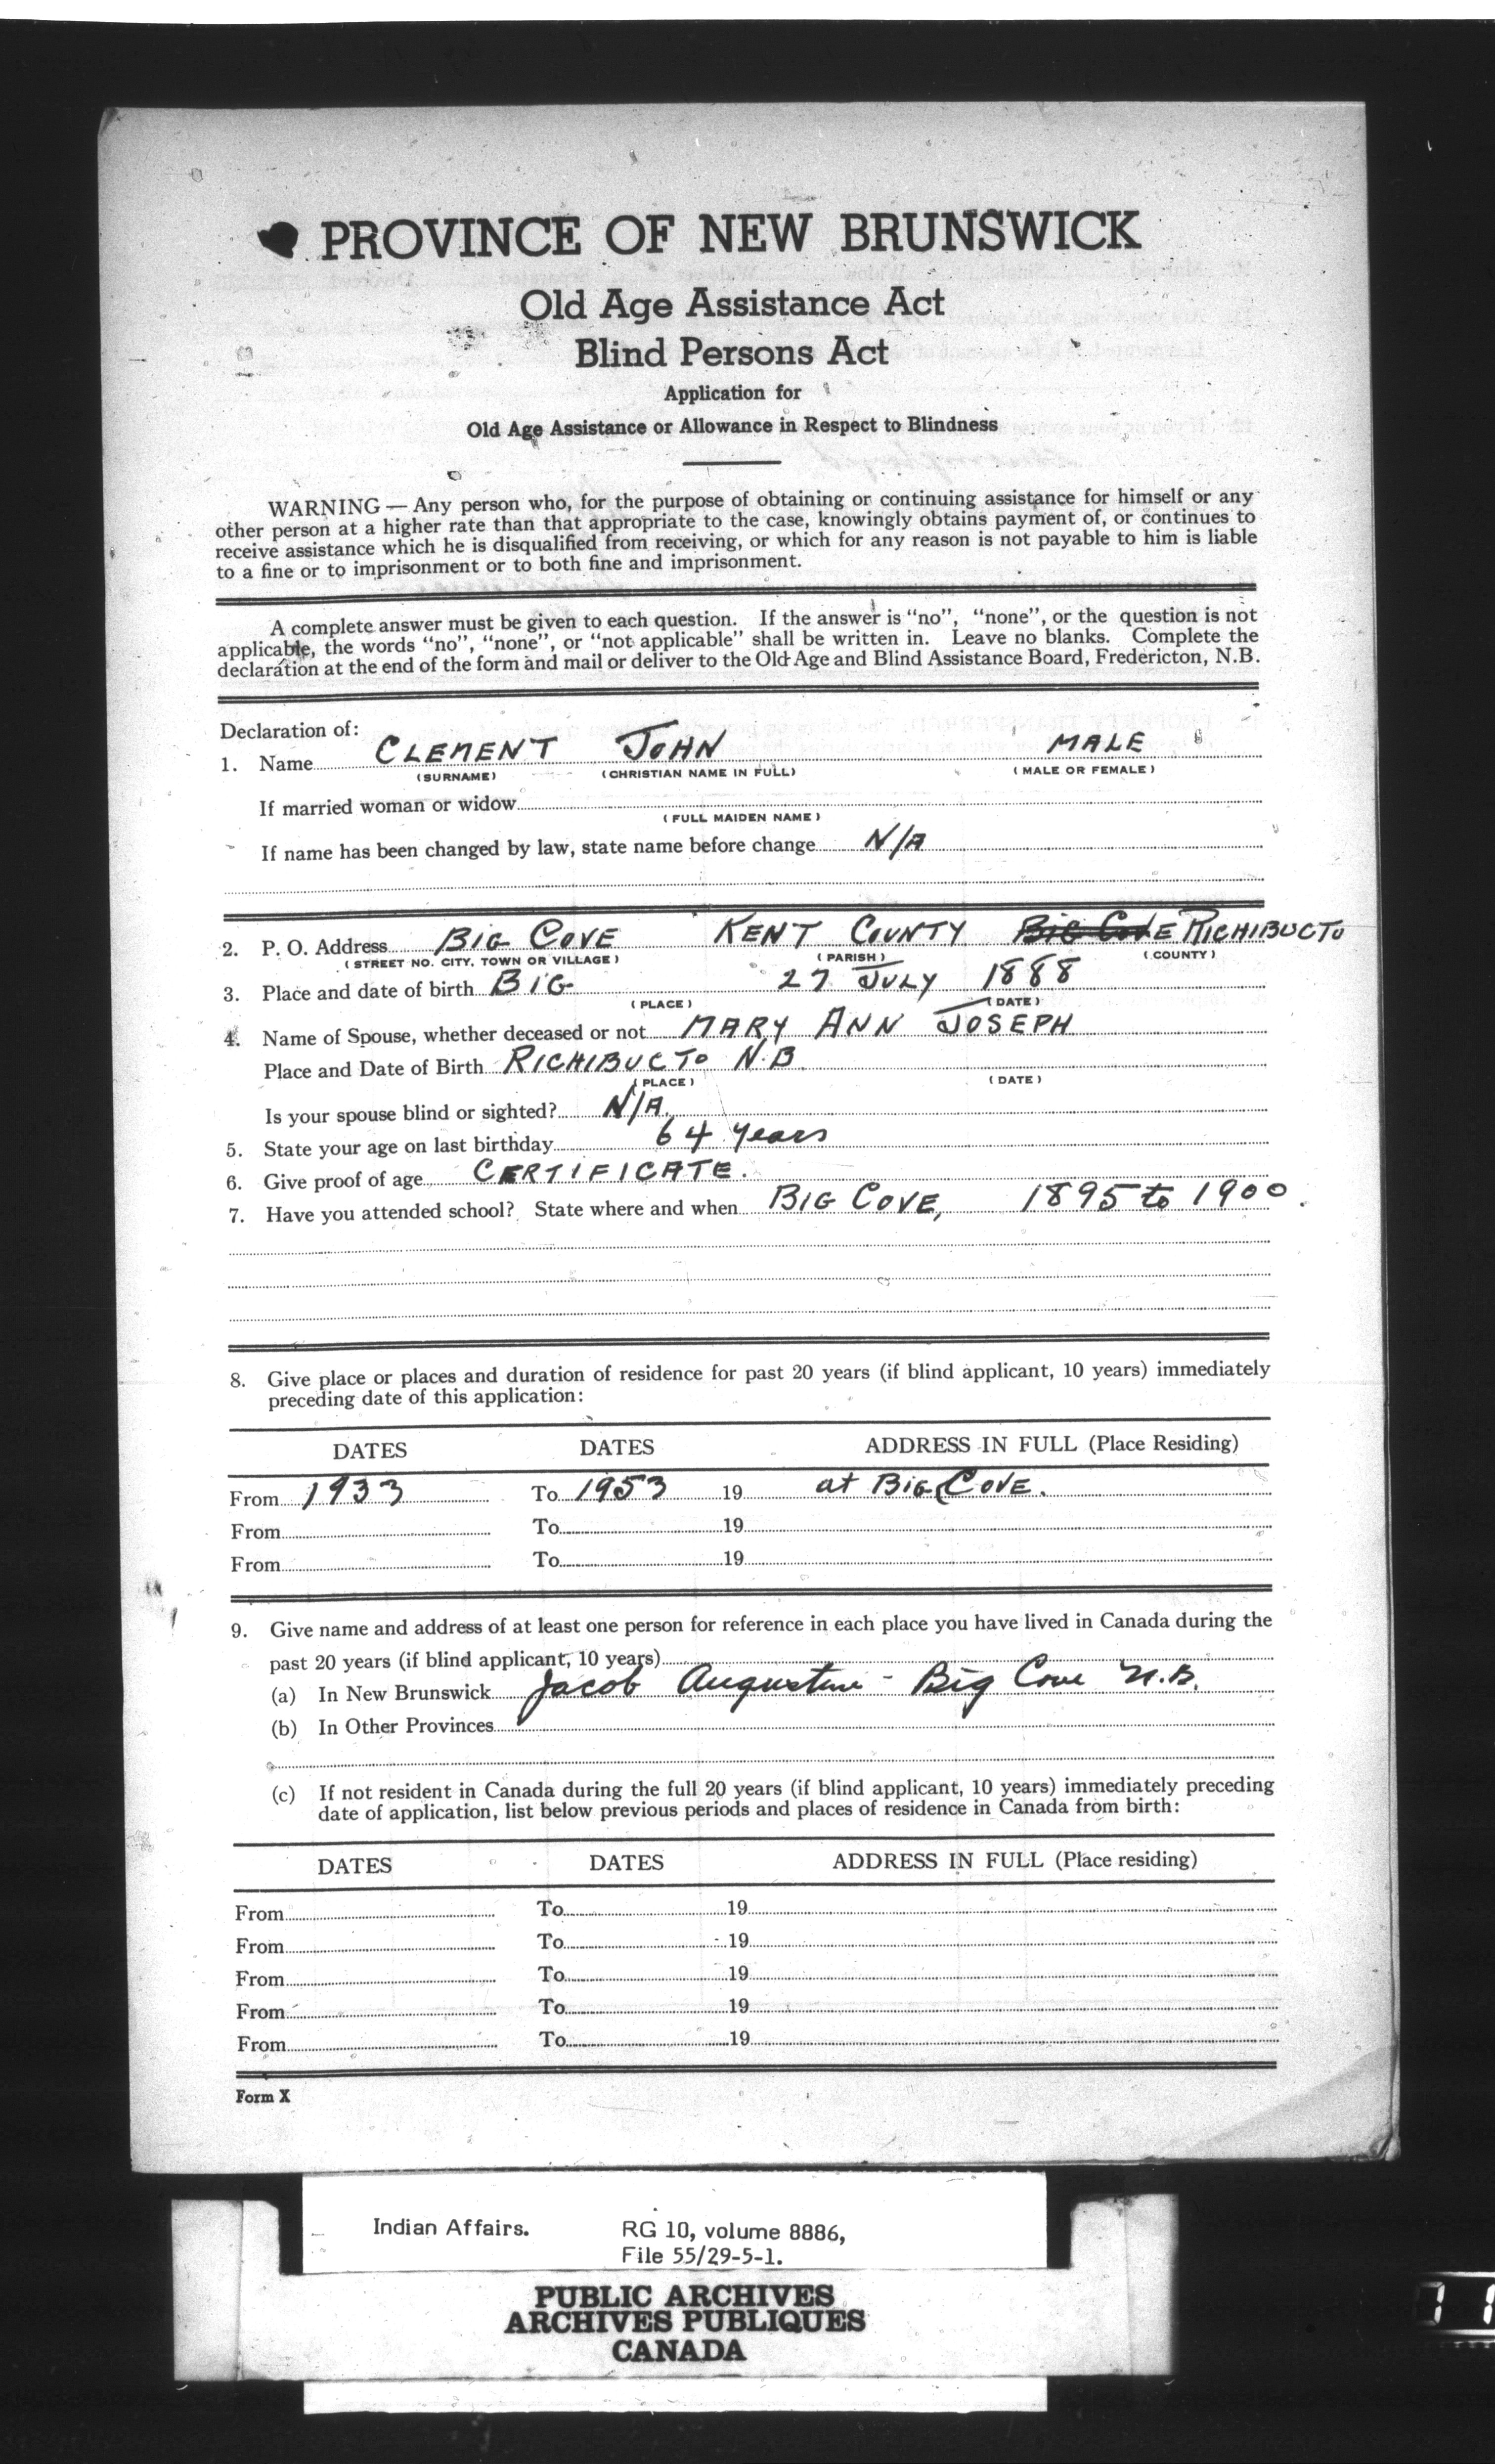 PROVINCE OF NEW BRUNSWICK
Old Age Assistance Act
Blind Persons Act
Application for
Old Age Assistance or Allowance in Respect to Blindness
WARNING — Any person who, for the purpose of obtaining or continuing assistance for himself or any
other person at a higher rate than that appropriate to the case, knowingly obtains payment of, or continues to
receive assistance which he is disqualified from receiving, or which for any reason is not payable to him is liable
to a fine or to imprisonment or to both fine and imprisonment.
A complete answer must be given to each question. If the answer is "no", "none", or the question is not
applicable, the words "no", "none", or "not applicable" shall be written in. Leave no blanks. Complete the
declaration at the end of the form and mail or deliver to the Old Age and Blind Assistance Board, Fredericton, N.B.
Declaration of:
1. Name CLEMENT JOHN MALE
(SURNAME) (CHRISTIAN NAME IN FULL) (MALE OR FEMALE)
If married woman or widow
(FULL MAIDEN NAME)
If name has been changed by law, state name before change N/A
2. P. O. Address BIG COVE KENT COUNTY BIG COVE RICHIBUCTO
(STREET NO. CITY, TOWN OR VILLAGE) (PARISH) (COUNTY)
3. Place and date of birth BIG 27 JULY 1888
(PLACE) (DATE)
4. Name of Spouse, whether deceased or not MARY ANN JOSEPH
Place and Date of Birth RICHIBUCTO N.B.
(PLACE) (DATE)
Is your spouse blind or sighted? N/A.
5. State your age on last birthday 64 years
6. Give proof of age CERTIFICATE.
7. Have you attended school? State where and when BIG COVE, 1895 to 1900.
8. Give place or places and duration of residence for past 20 years (if blind applicant, 10 years) immediately
preceding date of this application:
DATES DATES ADDRESS IN FULL (Place Residing)
From 1933 To 1953 19 at BIG COVE.
From To 19
From To 19
9. Give name and address of at least one person for reference in each place you have lived in Canada during the
past 20 years (if blind applicant, 10 years)
(a) In New Brunswick Jacob Augustine - Big Cove N.B.
(b) In Other Provinces
(c) If not resident in Canada during the full 20 years (if blind applicant, 10 years) immediately preceding
date of application, list below previous periods and places of residence in Canada from birth:
DATES DATES ADDRESS IN FULL (Place residing)
From To 19
From To 19
From To 19
From To 19
From To 19
Form X
Indian Affairs. RG 10, volume 8886,
File 55/29-5-1.
PUBLIC ARCHIVES
ARCHIVES PUBLIQUES
CANADA